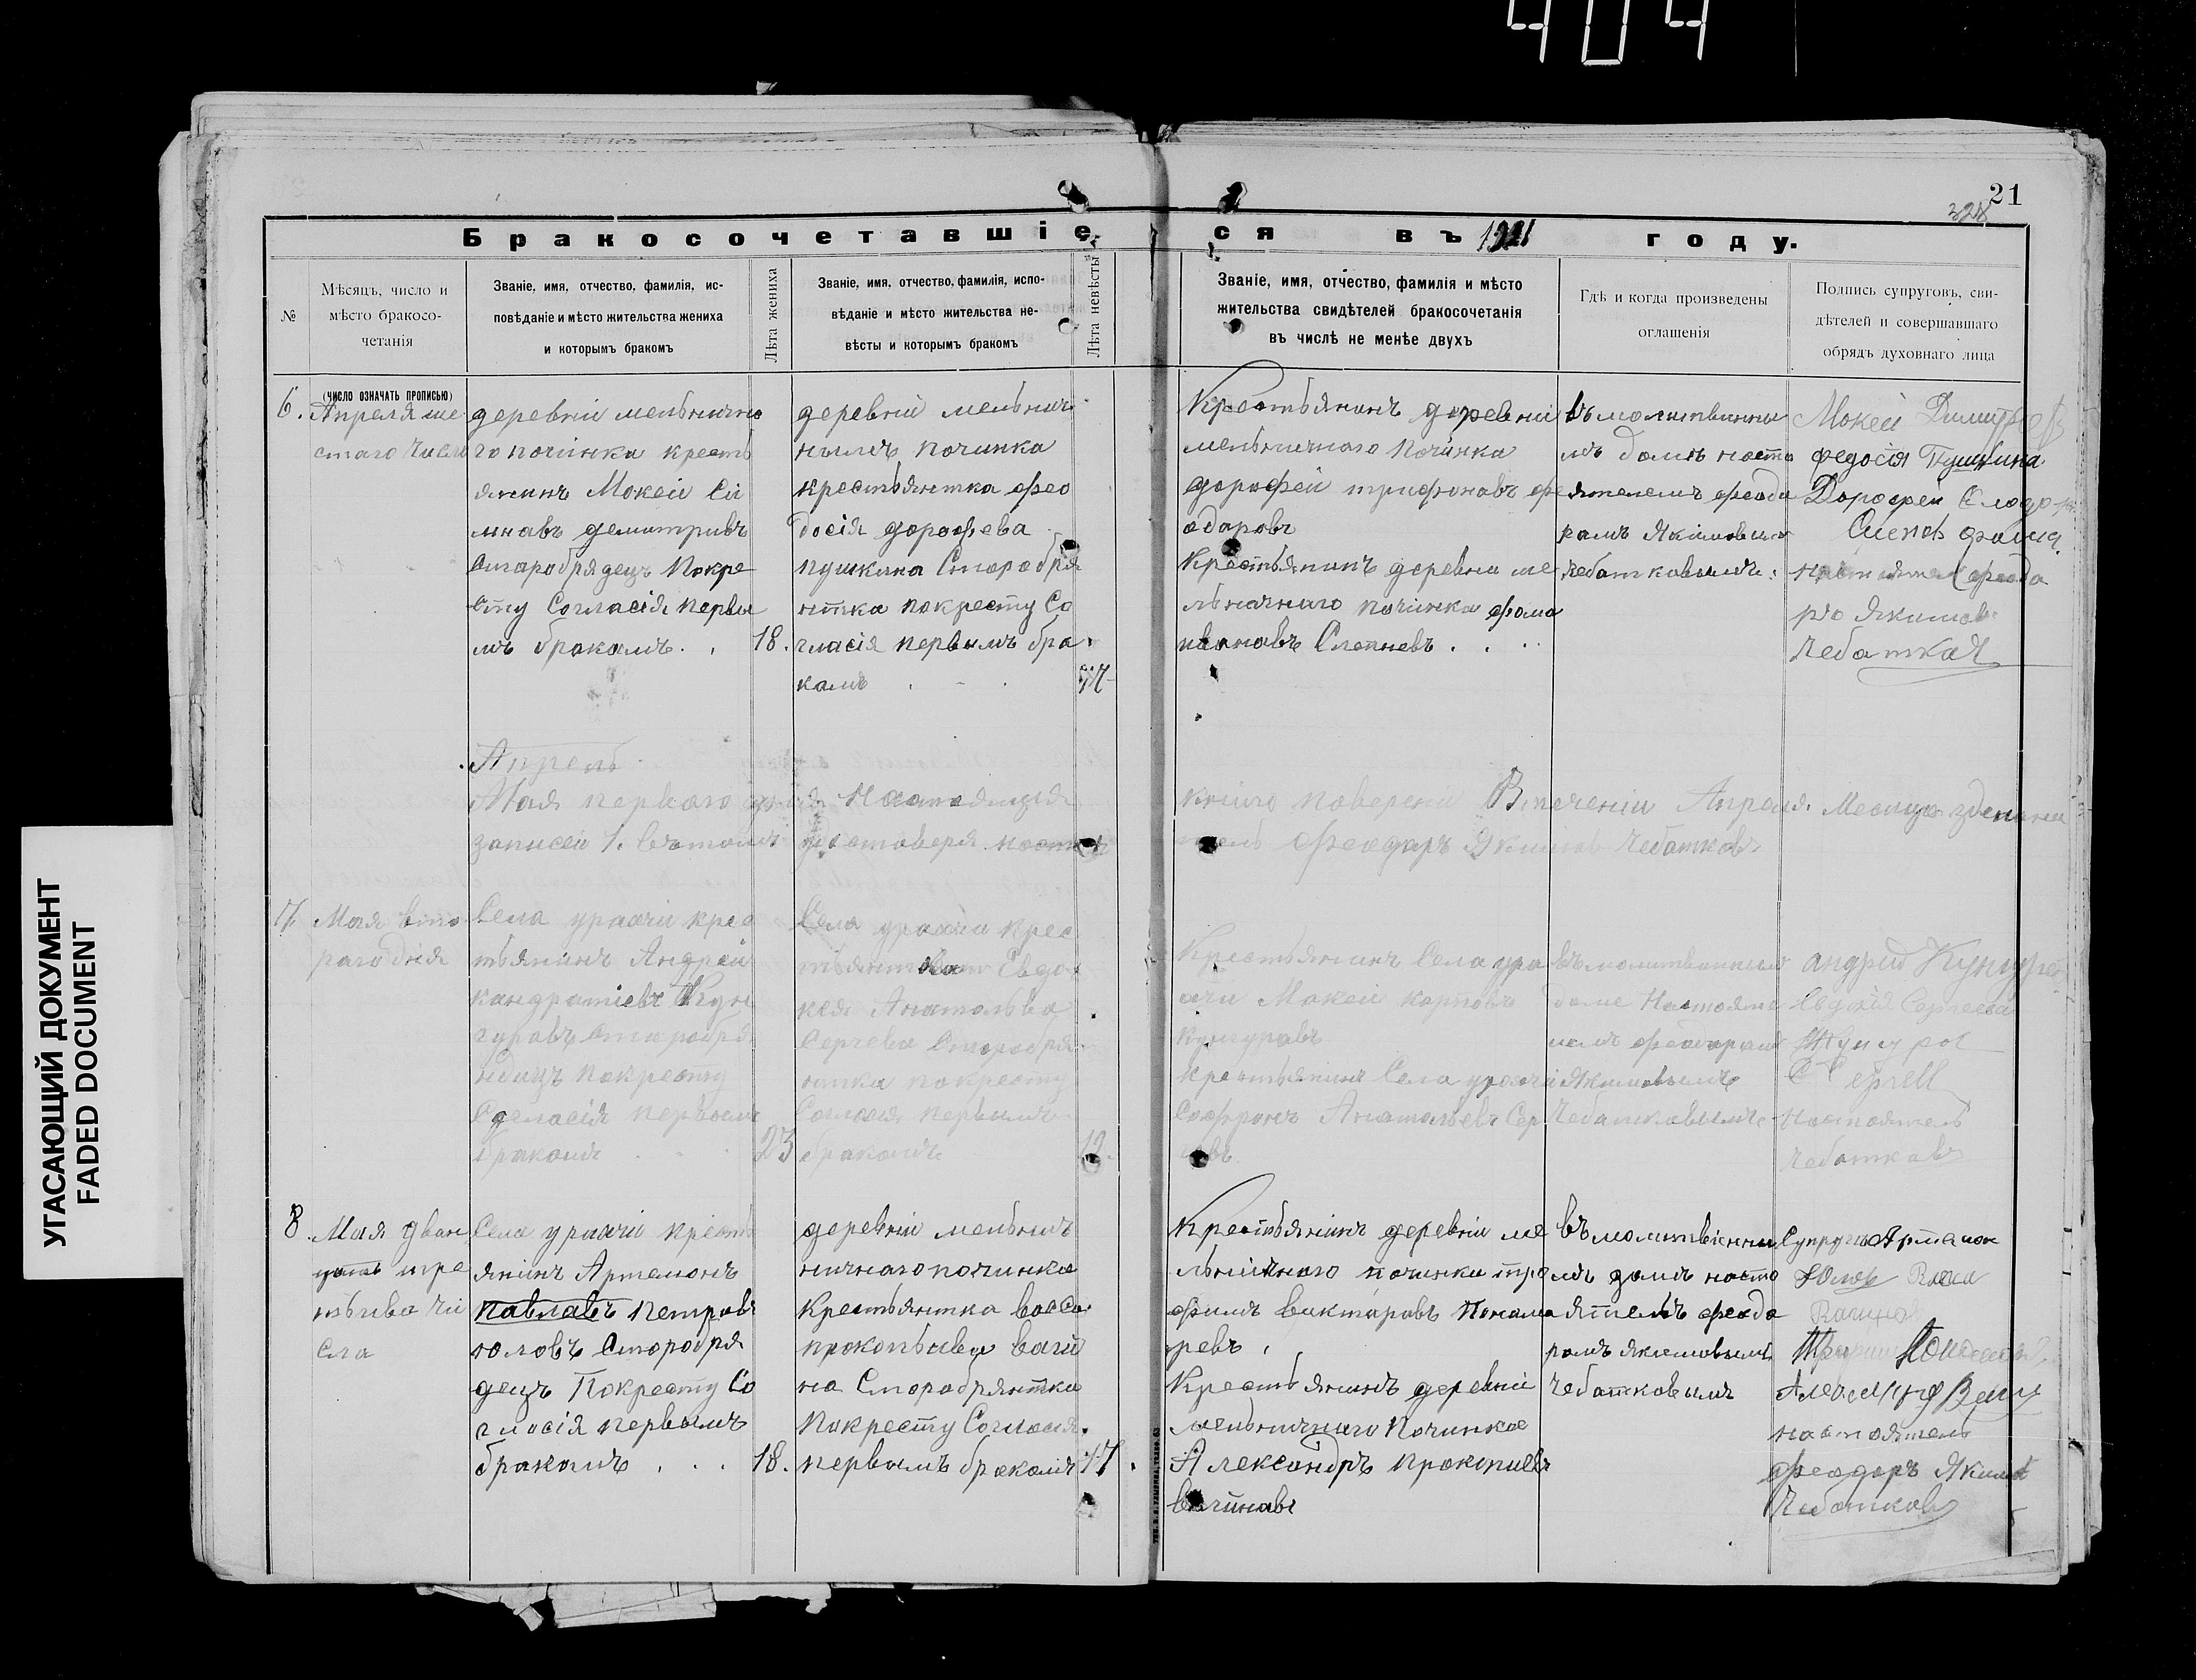 404
21
328
Бракосочетавшіеся въ 1921 году.
№
Мѣсяцъ, число и
мѣсто бракосо-
четанія
Званіе, имя, отчество, фамилія, ис-
повѣданіе и мѣсто жительства жениха
и которымъ бракомъ
Лѣта жениха
Званіе, имя, отчество, фамилія, испо-
вѣданіе и мѣсто жительства не-
вѣсты и которымъ бракомъ
Лѣта невѣсты
Званіе, имя, отчество, фамилія и мѣсто
жительства свидѣтелей бракосочетанія
въ числѣ не менѣе двухъ
Гдѣ и когда произведены
оглашенія
Подпись супруговъ, сви-
дѣтелей и совершавшаго
обрядъ духовнаго лица
(число означать прописью)
6.
Апреля ше
стаго числа
деревніи мельнично
го починка кресть
янинъ Мокей Си
мнавъ демитривъ
Старобрядецъ Покре
сту Согласія первы
мъ бракамъ.
18.
деревніи мельнич
нымъ починка
крестьянтка фео
досія дорофева
пушкина Старобря
нтка покресту Со
гласія первымъ бра
камъ
17
Крестьянинъ деревніи
мельничнаго починка
дорофей трифонавъ фе
одоровъ
Крестьянинъ деревни ме
льначнаго починка фома
ивановъ Слепневъ
въ молитвинны
мъ домъ насто
ятелемъ феодо
рамъ Якимовым
чебатковымъ.
Мокей Димитрев
федосія Пушкина
Дорофеи
фома
настоятел феодо
ръ Якимов
Чебаткав
Апрель
Мая первого дня Настоящия
книго поверени В течении Апреля Месяца
записей 1. въ томъ удостоверя настоя
тель феодоръ Якимов Чебатковъ
7.
Мая вто
раго дня
Села урахчи крес
тьянинъ Андрей
кандратіевъ Кун
гуравъ Старобря
ндицъ покресту
Согласія первым
бракомъ
23
Села урахчи крес
тьянтка Евдо
кея Анатольва
Сергева Старобря
нтка покресту
Согласия первымъ
бракомъ
Крестьянинъ Села ура
хчи Мокей карповъ
Кунгуравъ
крестьянинъ Села урахчи
Софронъ Анатольевъ Сер
гевъ
въ молитвинным
доме Настояте
лемъ феодорамъ
Якимовымъ
Чебатковымъ
андрий Кунгуров
Евдокія Сергеева
Кунгуров
С Сергев
Настоятель
Чебатков
8.
Мая двац
цать тре
тьива чи
сла
Села урахчи кресть
янинъ Артемонъ
павлавъ петровъ
юловъ Старобря
децъ Покресту Со
гласія первымъ
бракамъ
18.
деревніи мельнич
ничнаго починка
Крестьянтка васса
прокопьива ваги
на Старобрянтка
Покресту Согласия
первымъ бракамъ
17.
Крестьянінъ деревніи ме
льничнаго починки тро
фимъ викторавъ Понома
ревъ
Крестьянинъ деревніи
мельничнаго Починкае
Александръ прокопиевъ
вагинавъ
въ молитвінны
мъ домъ насто
ятелъ феодо
рамъ якимовымъ
чебатковымъ
Супруги Артамон
Юловъ
Вагина
настоятель
феодоръ Якимов
Чебатковъ
УГАСАЮЩИЙ ДОКУМЕНТ
FADED DOCUMENT